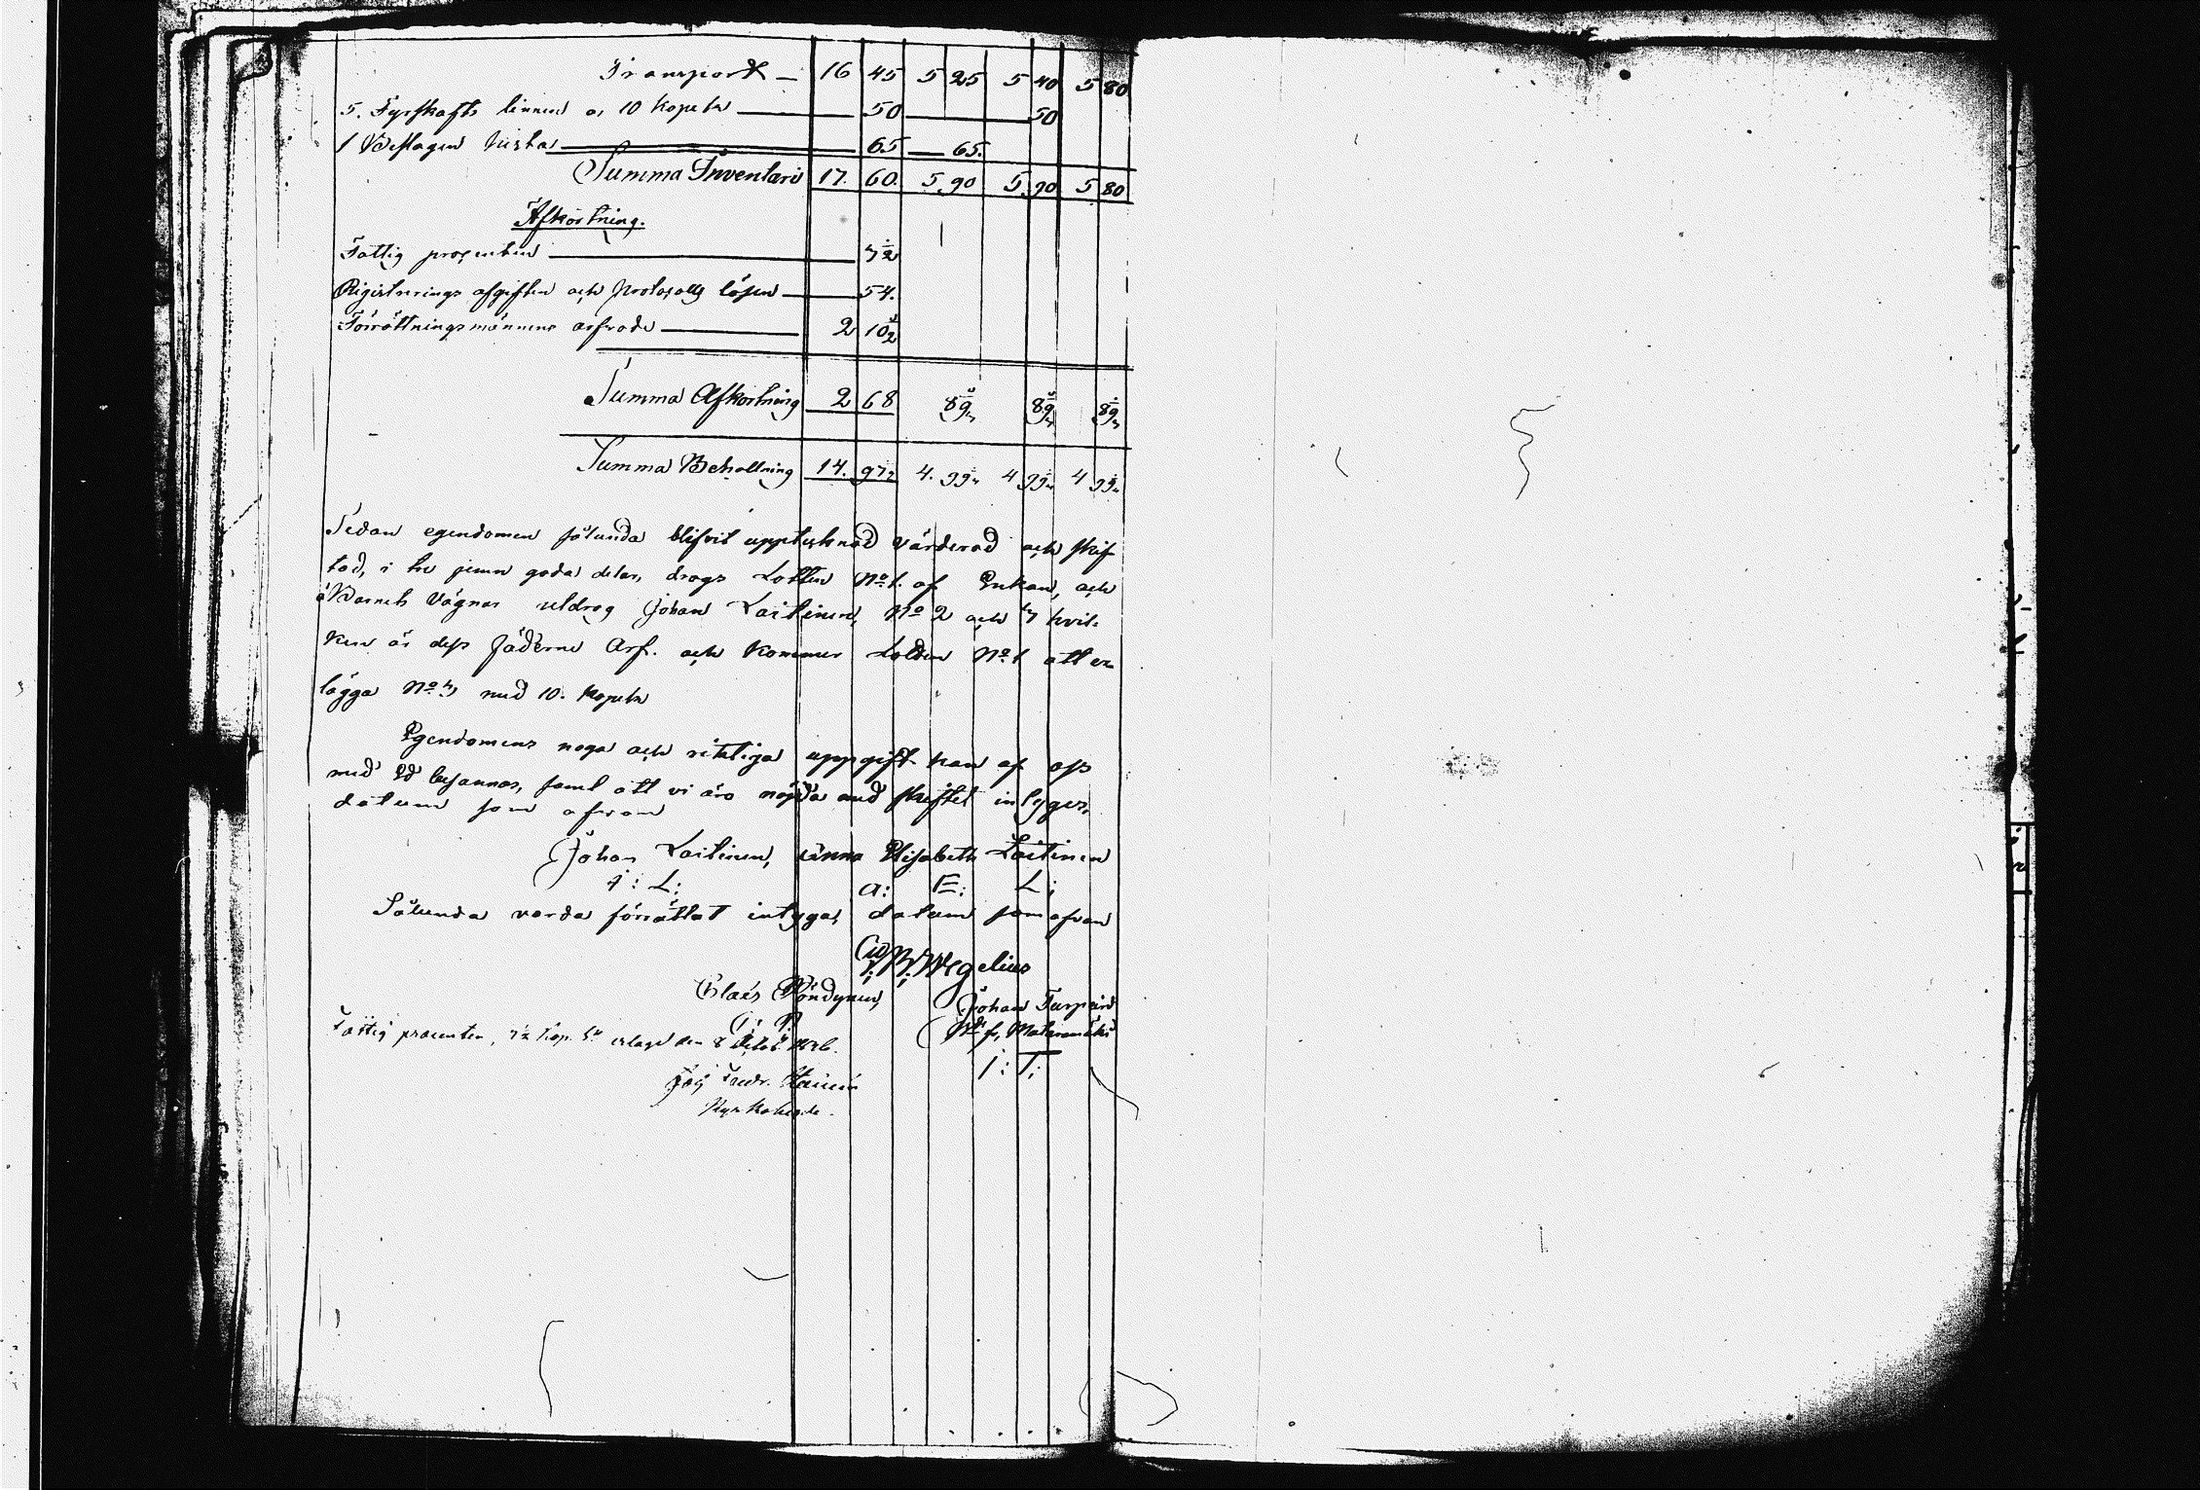 Transport – 16 45 5 25 5 40 5 80
5. Fyrskafts linnen a, 10 Kopek 50 50
1 Beslagen kista 65 65.
Summa Inventari 17. 60. 5. 90 5. 90 5 80
Afkortning.
Fattig procenten 3½
Registrerings afgiften och Protocolls lösen 54.
Förrättningsmännens arfvode 2 10½
Summa Afkortning 2 68 89⅓ 89⅓ 89⅓
Summa Behollning 14. 97½
Sedan egendomen sålunda blifvit upptecknad värderad och skif
tad, i tre jemn goda delar, drogs Lotten No 1. af Enkan, och
å Barnets vägnar utdrog Johan Laitinen, No 2 och 3 hvil-
ken är dess fäderne Arf. och kommer Lotten No 1 att er
lägga No 3 med 10. Kopek
Egendomens noga och riktiga uppgift kan af oss
med Ed besannas, samt att vi äro nöjda med skiftet intygas,
datum som ofvan
Johan Laitinen, Anna Elisabeth Laitinen
J: L: A: E: L:
Sålunda varda förrättat intygas, datum som ofvan
Wegelius
Claës Pöndynen, Johan Turpein
C: P.
Fattig procenten, 3½ Kop. Sr erlagd den 8
J: T: